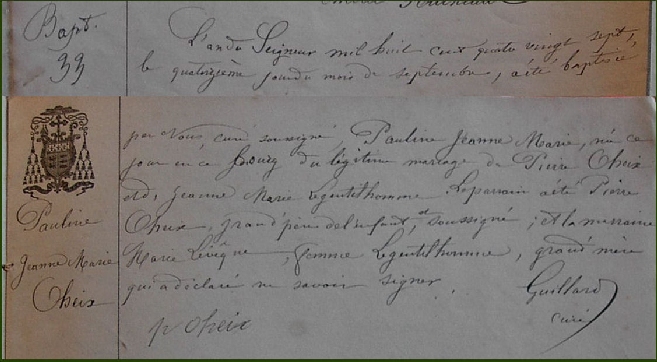 Bapt.
33
L'an du Seigneur mil huit cent quatre vingt sept,
le quatorzième jour du mois de septembre, a été baptisée
par Nous, curé soussigné Pauline Jeanne Marie, née ce
jour en ce bourg du légitime mariage de Pierre Oheix
et de Jeanne Marie Legentilhomme. Le parrain a été Pierre
Oheix, grand'père de l'enfant, soussigné ; et la marraine
Marie Lévêque, femme Legentilhomme, grand'mère
qui a déclaré ne savoir signer.
Guillard
curé
p Oheix
Pauline
Jeanne Marie
Oheix